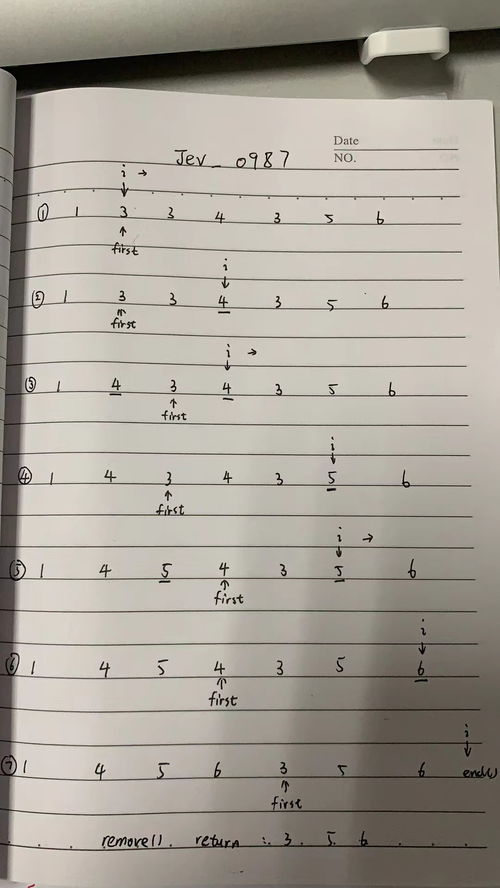 Date
Jev_0987 NO.
i →
↓
① 1 3 3 4 3 5 6
↑
first
i
↓
② 1 3 3 4 3 5 6
↑
first
i →
↓
③ 1 4 3 4 3 5 6
↑
first
i
↓
④ 1 4 3 4 3 5 6
↑
first
i →
↓
⑤ 1 4 5 4 3 5 6
↑
first
i
↓
⑥ 1 4 5 4 3 5 6
↑
first
i
↓
⑦ 1 4 5 6 3 5 6 end()
↑
first
remove(). return : 3. 5. 6